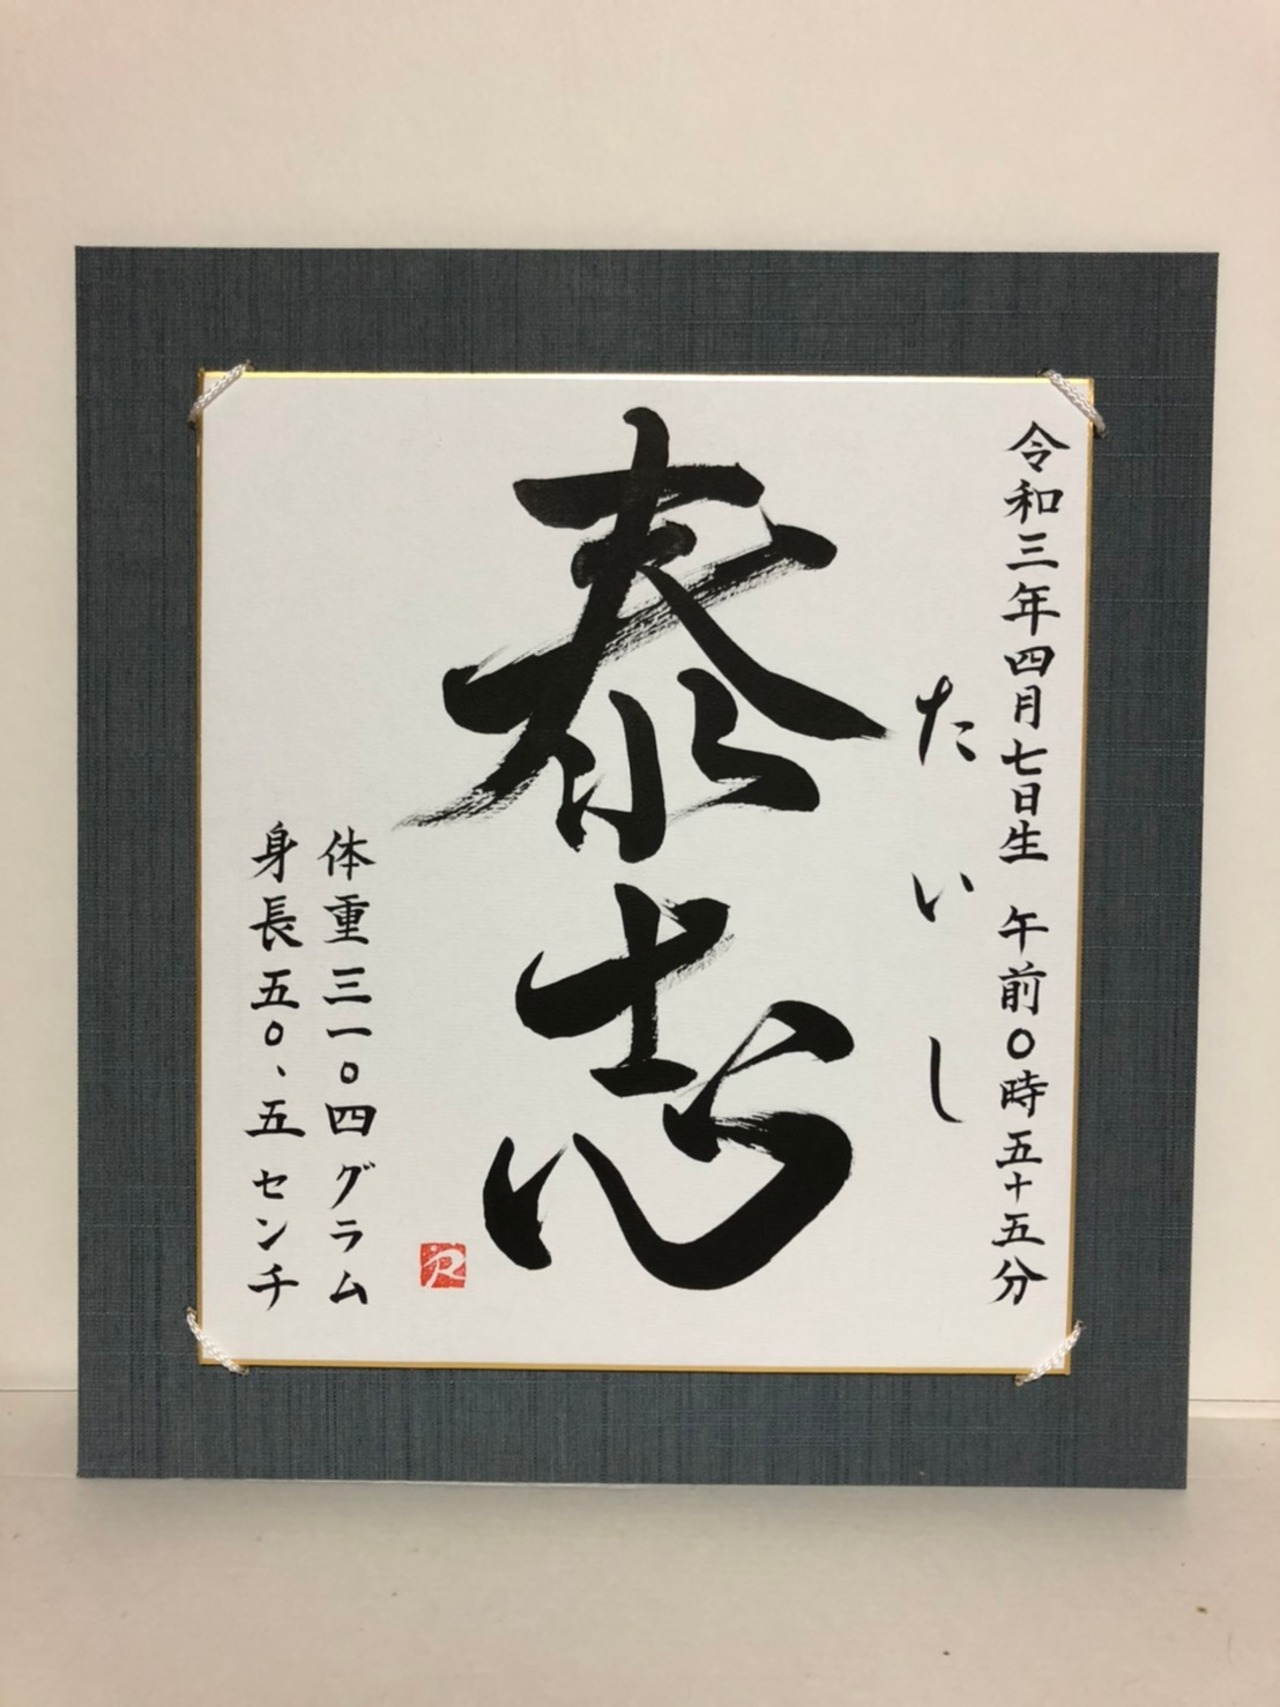 令和三年四月七日生 午前〇時五十五分
たいし
泰志
体重三一〇四グラム
身長五〇、五センチ
R